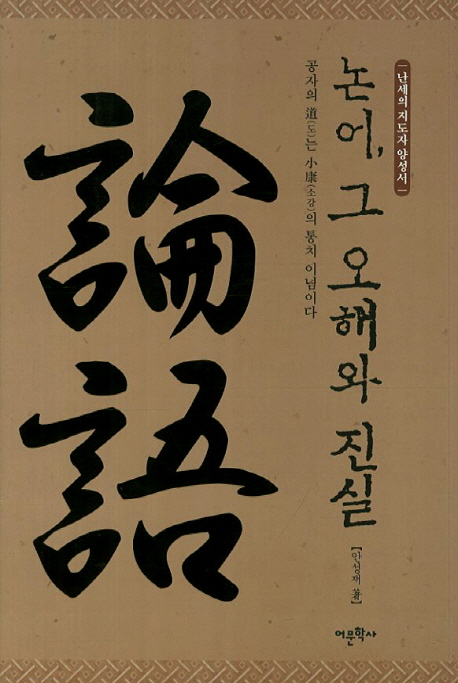 난세의 지도자 양성서
논어, 그 오해와 진실
공자의 道(도)는 小康(소강)의 통치 이념이다
論語
【안성재 著】
어문학사